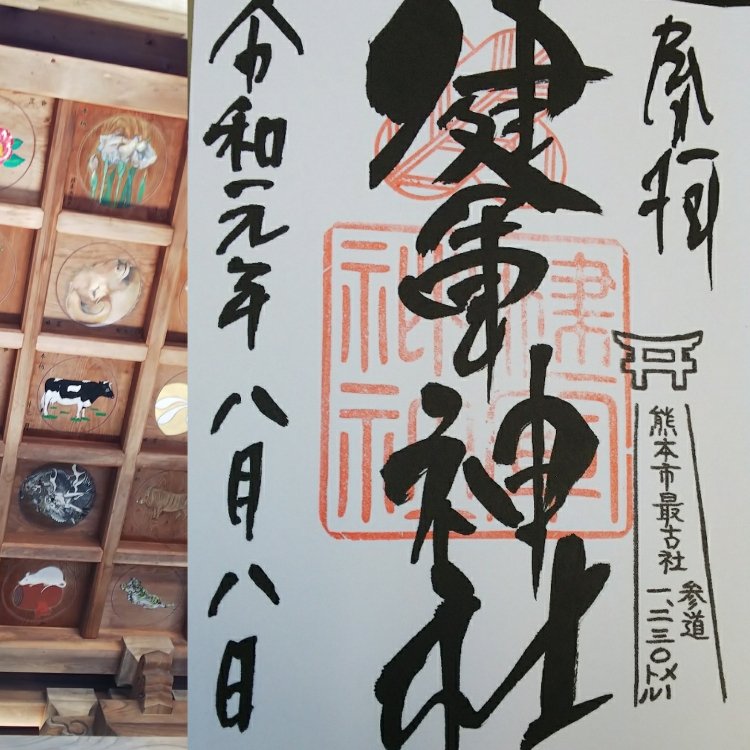 奉拝
熊本市最古社
参道
一、二三〇メートル
健軍神社
健軍
神社
令和元年八月八日